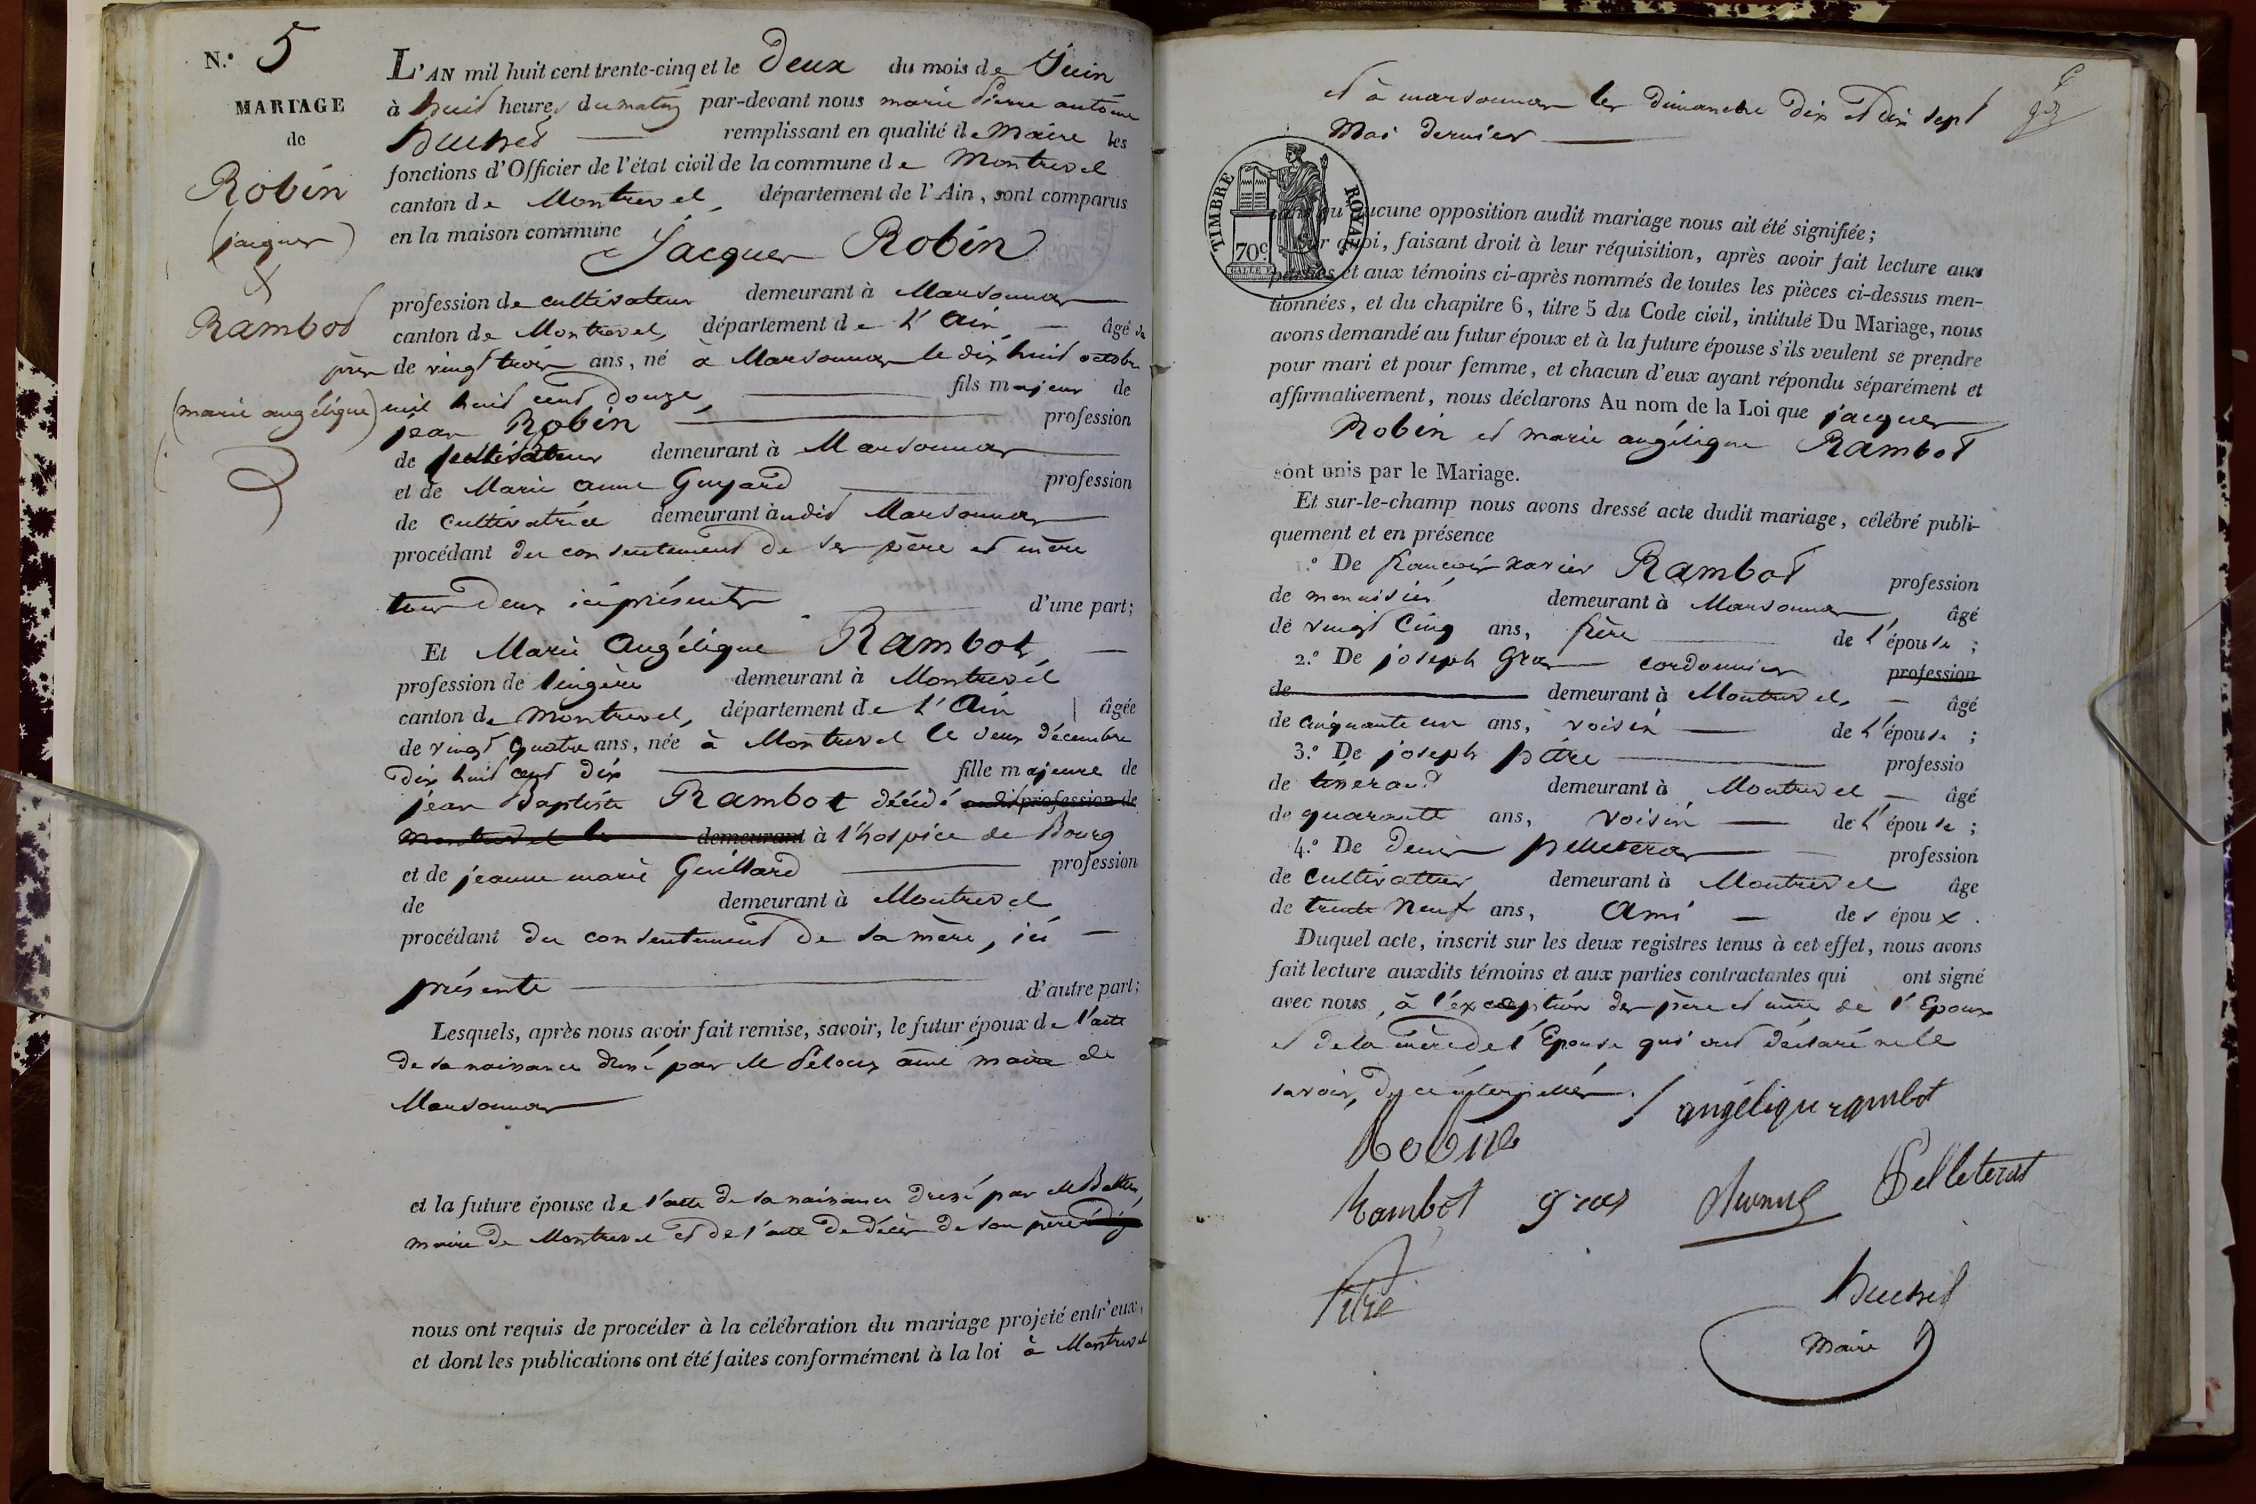 N.° 5
MARIAGE
de
Robin
(jacques)
&
Rambot
(marie angélique)
L'AN mil huit cent trente-cinq et le Deux du mois de Juin
à huit heures du matin par-devant nous marie Pierre antoine
Buchet remplissant en qualité de Maire les
fonctions d'Officier de l'état civil de la commune de Montrevel
canton de Montrevel, département de l'Ain, sont comparus
en la maison commune
Jacques Robin
profession de cultivateur demeurant à Marsonnas
canton de Montrevel, département de l'Ain, — âgé de
près de vingt trois ans, né à Marsonnas le dix huit octobre
mil huit cent douze, fils majeur de
jean Robin profession
de cultivateur demeurant à Marsonnas
et de Marie anne Guyard profession
de Cultivatrice demeurant audit Marsonnas
procédant du consentement de ses père et mère
tous deux ici présents d'une part;
Et Marie Angélique Rambot, —
profession de lingère demeurant à Montrevel
canton de Montrevel, département de l'Ain âgée
de vingt quatre ans, née à Montrevel le deux décembre
dix huit cent dix fille majeure de
jean Baptiste Rambot décédé audit profession de
Montrevel le demeurant à l'hospice de Bourg
et de jeanne marie Guillard profession
de demeurant à Montrevel
procédant du consentement de sa mère, ici —
présente d'autre part;
Lesquels, après nous avoir fait remise, savoir, le futur époux de l'acte
de sa naissance dressé par M ainé maire de
Marsonnas
et la future épouse de l'acte de sa naissance dressé par M
maire de Montrevel et de l'acte de décès de son père
nous ont requis de procéder à la célébration du mariage projeté entr'eux,
et dont les publications ont été faites conformément à la loi à Montrevel
et à marsonnas les dimanche dix et dix sept
Mai dernier
TIMBRE ROYAL
70c
sans qu'aucune opposition audit mariage nous ait été signifiée;
Sur quoi, faisant droit à leur réquisition, après avoir fait lecture aux
parties et aux témoins ci-après nommés de toutes les pièces ci-dessus men-
tionnées, et du chapitre 6, titre 5 du Code civil, intitulé Du Mariage, nous
avons demandé au futur époux et à la future épouse s'ils veulent se prendre
pour mari et pour femme, et chacun d'eux ayant répondu séparément et
affirmativement, nous déclarons Au nom de la Loi que jacques
Robin et marie angélique Rambot
sont unis par le Mariage.
Et sur-le-champ nous avons dressé acte dudit mariage, célébré publi-
quement et en présence
1.° De francois xavier Rambot profession
de menuisier demeurant à Marsonnas, âgé
de vingt Cinq ans, frère de l'épouse;
2.° De joseph Gros cordonnier profession
de demeurant à Montrevel, — âgé
de cinquante un ans, voisin — de l'épouse;
3.° De joseph pitre professio
de tisserand demeurant à Montrevel — âgé
de quarante ans, voisin — de l'épouse;
4.° De Denis pelleteras — profession
de Cultivateur, demeurant à Montrevel âge
de trente Neuf ans, Ami — des époux.
Duquel acte, inscrit sur les deux registres tenus à cet effet, nous avons
fait lecture auxdits témoins et aux parties contractantes qui ont signé
avec nous, à l'exception des père et mère de l'Epoux
et de la mère de l'Epouse qui ont déclaré ne le
savoir, de ce interpellés.
angélique rambot
Robin
Rambot gros Pelleterat
Pitre
Buchet
Maire